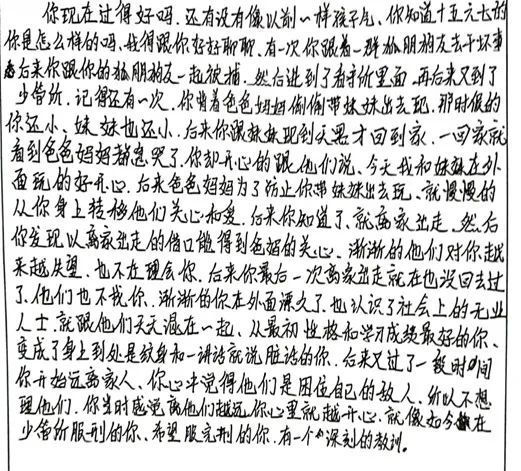 你现在过得好吗，还有没有像以前一样孩子气，你知道十五六七的
你是怎么样的吗，我得跟你好好聊聊，有一次你跟着一群狐朋狗友去干坏事
后来你跟你的狐朋狗友一起被捕，然后进到了看守所里面，再后来又到了
少管所，记得还有一次，你背着爸爸妈妈偷偷带妹妹出去玩，那时候的
你还小、妹妹也还小，后来你跟妹妹玩到天黑才回到家，一回家就
看到爸爸妈妈都急哭了，你却开心的跟他们说、今天我和妹妹在外
面玩的好开心，后来爸爸妈妈为了防止你带妹妹出去玩、就慢慢的
从你身上转移他们关心和爱，后来你知道了，就离家出走，然后
你发现以离家出走的借口能得到爸妈的关心、渐渐的他们对你越
来越失望，也不在理会你，后来你最后一次离家出走就在也没回去过
了，他们也不找你、渐渐的你在外面漂久了，也认识了社会上的无业
人士，就跟他们天天混在一起、从最初性格和学习成绩最好的你、
变成了身上到处是纹身和一讲话就说脏话的你，后来又过了一段时间
你开始远离家人、你心中觉得他们是困住自己的敌人，所以不想
理他们，你当时感觉离他们越远你心里就越开心，就像如今在
少管所服刑的你、希望服完刑的你，有一个深刻的教训。